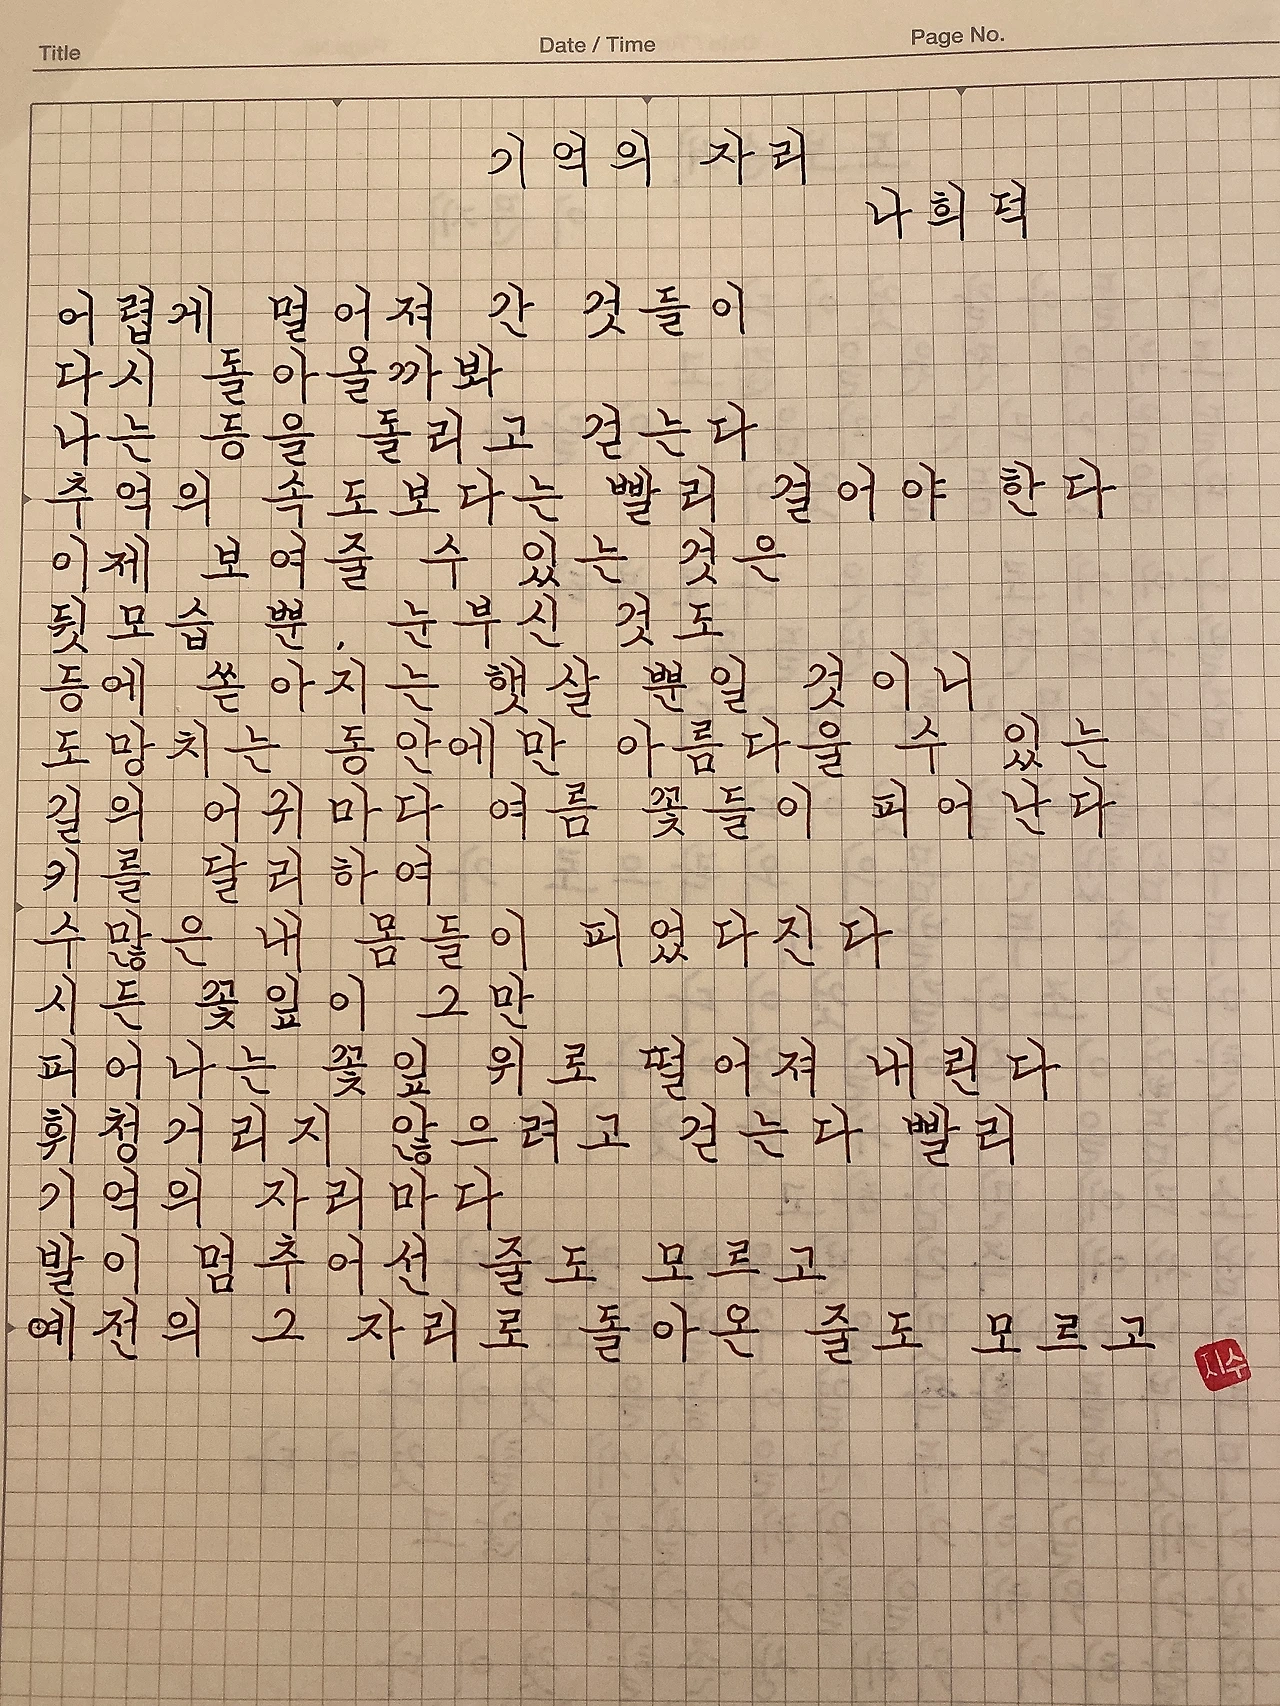 Title Date / Time Page No.
기억의 자리
나희덕
어렵게 멀어져 간 것들이
다시 돌아올까봐
나는 등을 돌리고 걷는다
추억의 속도보다는 빨리 걸어야 한다
이제 보여줄 수 있는 것은
뒷모습 뿐, 눈부신 것도
등에 쏟아지는 햇살 뿐일 것이니
도망치는 동안에만 아름다울 수 있는
길의 어귀마다 여름 꽃들이 피어난다
키를 달리하여
수많은 내 몸들이 피었다진다
시든 꽃잎이 그만
피어나는 꽃잎 위로 떨어져 내린다
휘청거리지 않으려고 걷는다 빨리
기억의 자리마다
발이 멈추어선 줄도 모르고
예전의 그 자리로 돌아온 줄도 모르고
지수